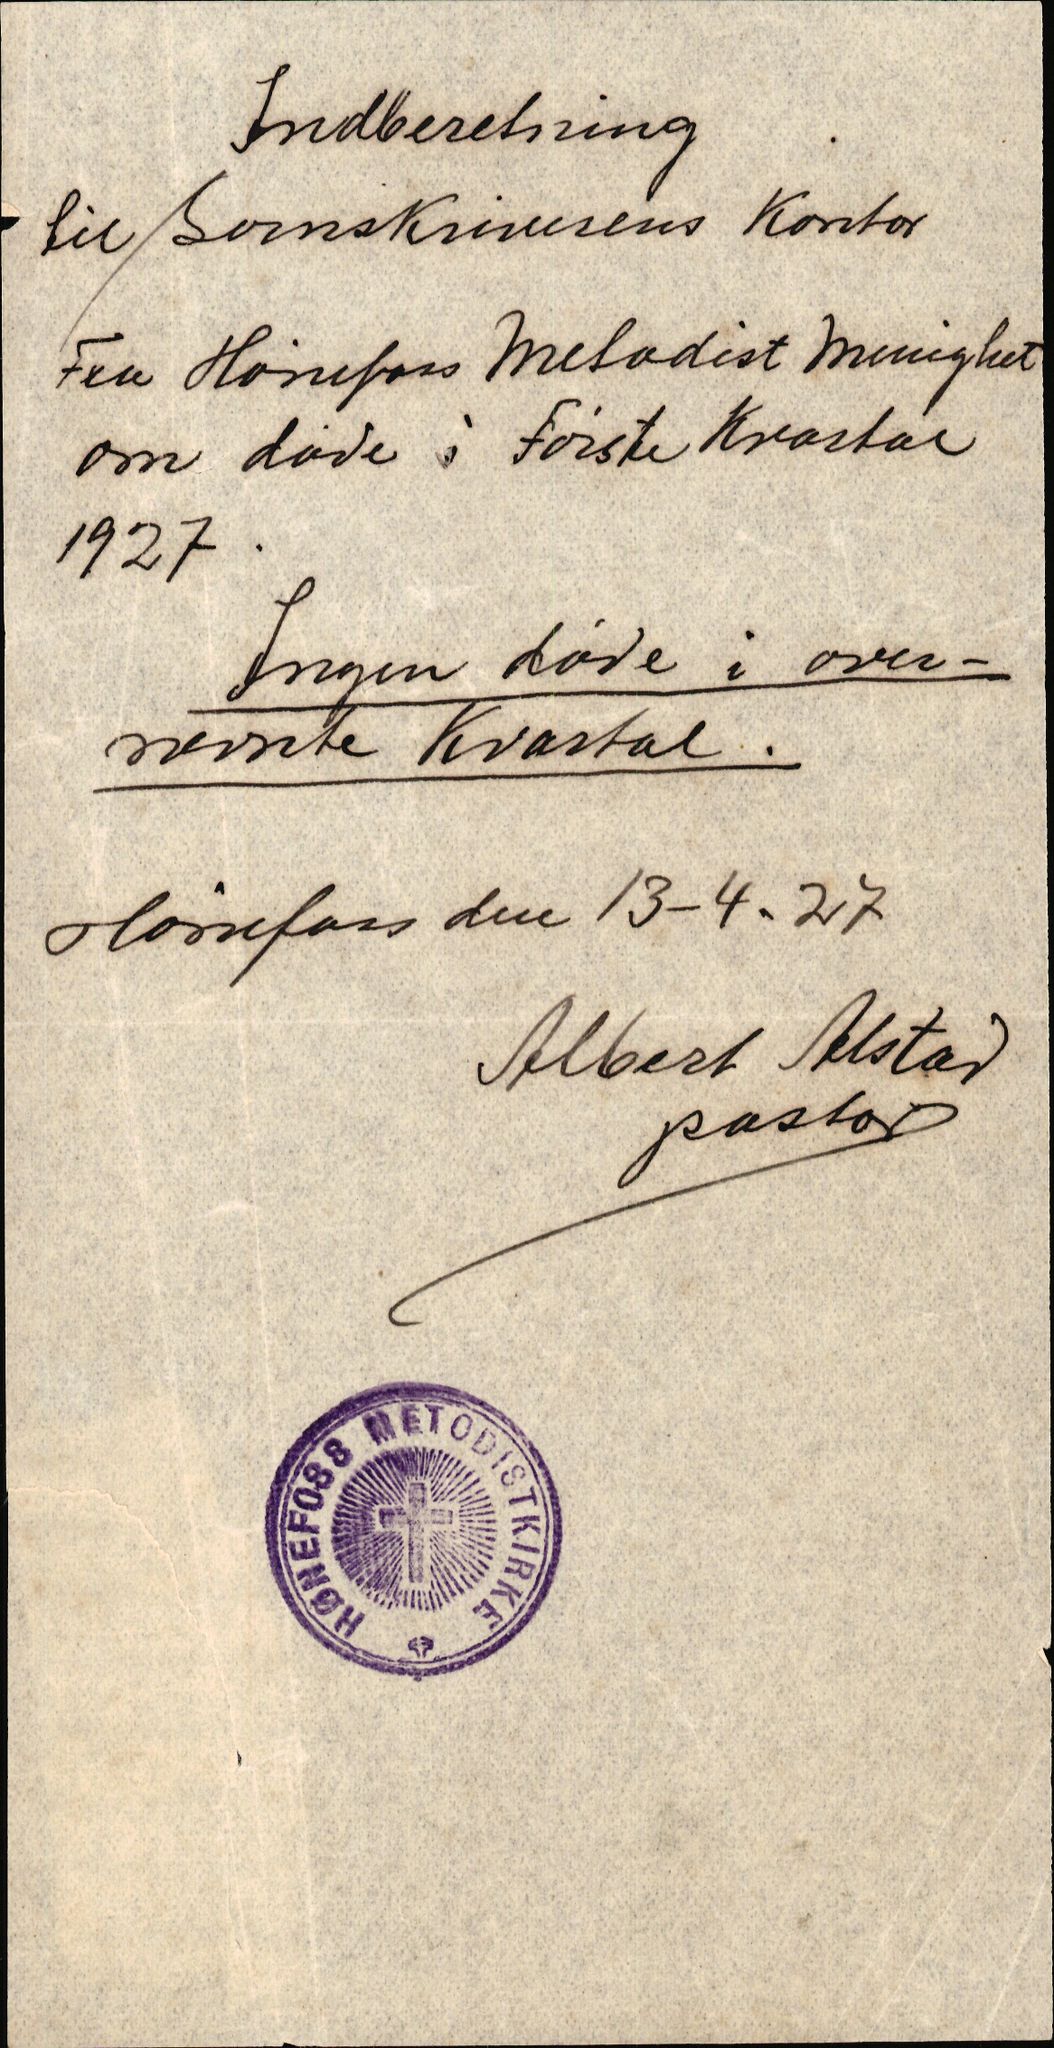 Indberetning
til Sornskriverens Kontor
Fra Hönefoss Metodist Menighet
om døde i Første Kvartal
1927.
Ingen døde i oven-
nevnte Kvartal.
Hönefoss den 13-4-27
Albert Alstad
pastor
HØNEFOSS METODISTKIRKE